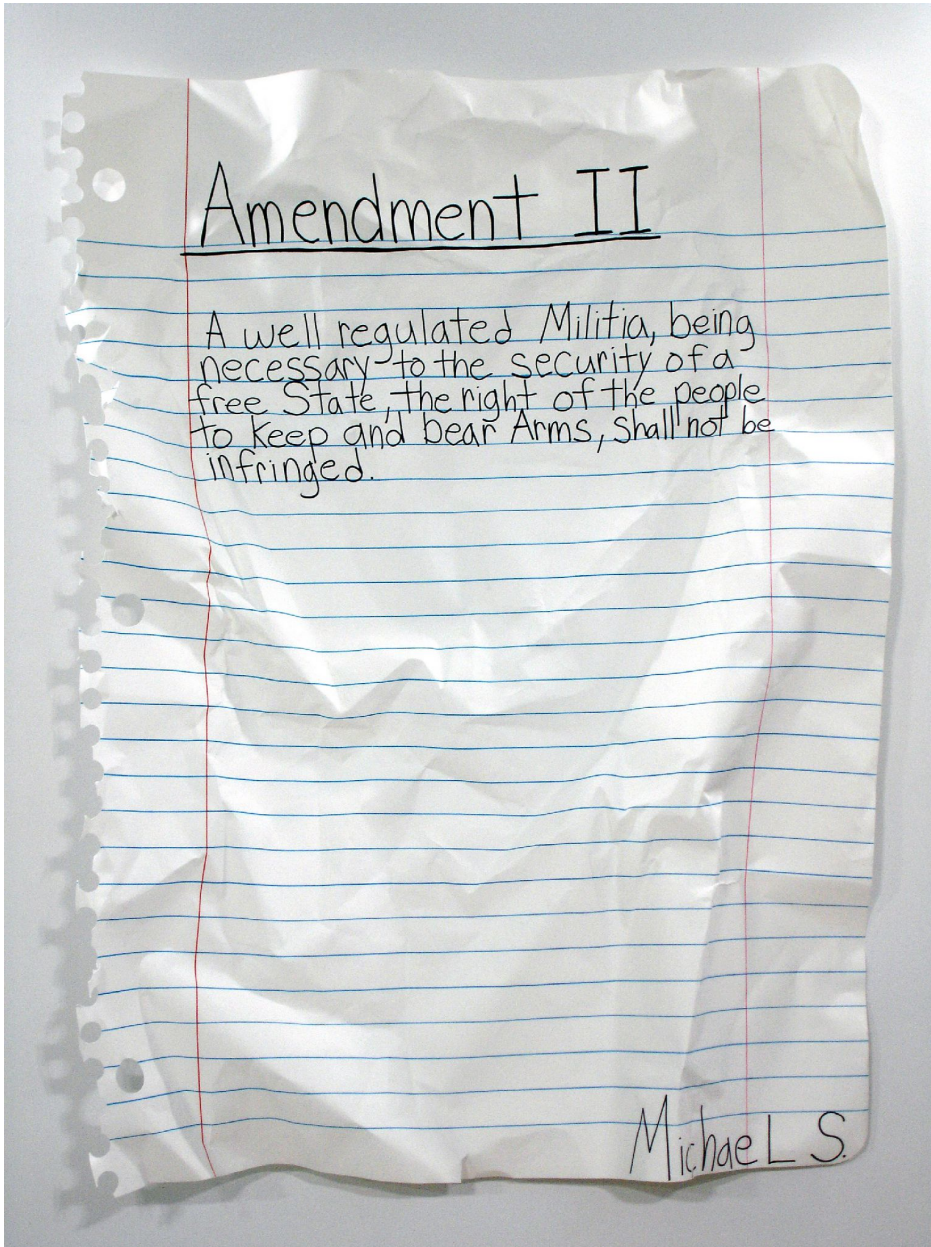 Amendment II
A well regulated Militia, being
necessary to the security of a
free State, the right of the people
to keep and bear Arms, shall not be
infringed.
MichaeL S.